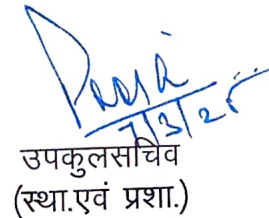 7/3/25
उपकुलसचिव
(स्था.एवं प्रशा.)